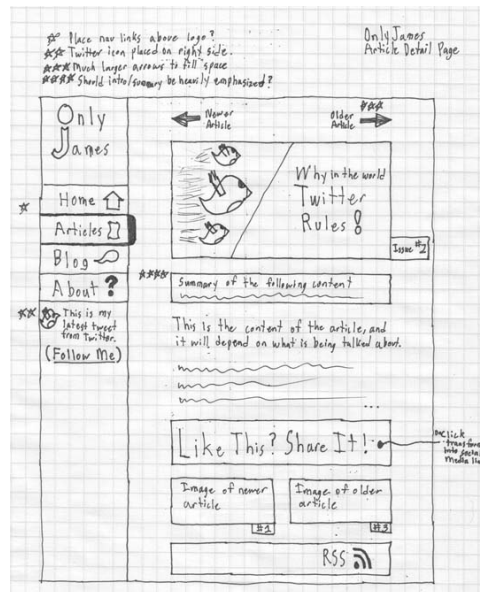 ☆ Place nav links above logo?
☆☆ Twitter icon placed on right side.
☆☆☆ Much larger arrows to fill space
☆☆☆☆ Should intro/summary be heavily emphasized?
Only James
Article Detail Page
Only
James
Newer
Article
Older
Article
☆☆☆
Why in the world
Twitter
Rules!
Issue #2
☆
Home
Articles
Blog
About ?
☆☆☆☆
Summary of the following content
☆☆
This is my
latest tweet
from Twitter.
(Follow Me)
This is the content of the article, and
it will depend on what is being talked about.
...
Like This? Share It!
on click
transform
into social
media
Image of newer
article
#1
Image of older
article
#3
RSS